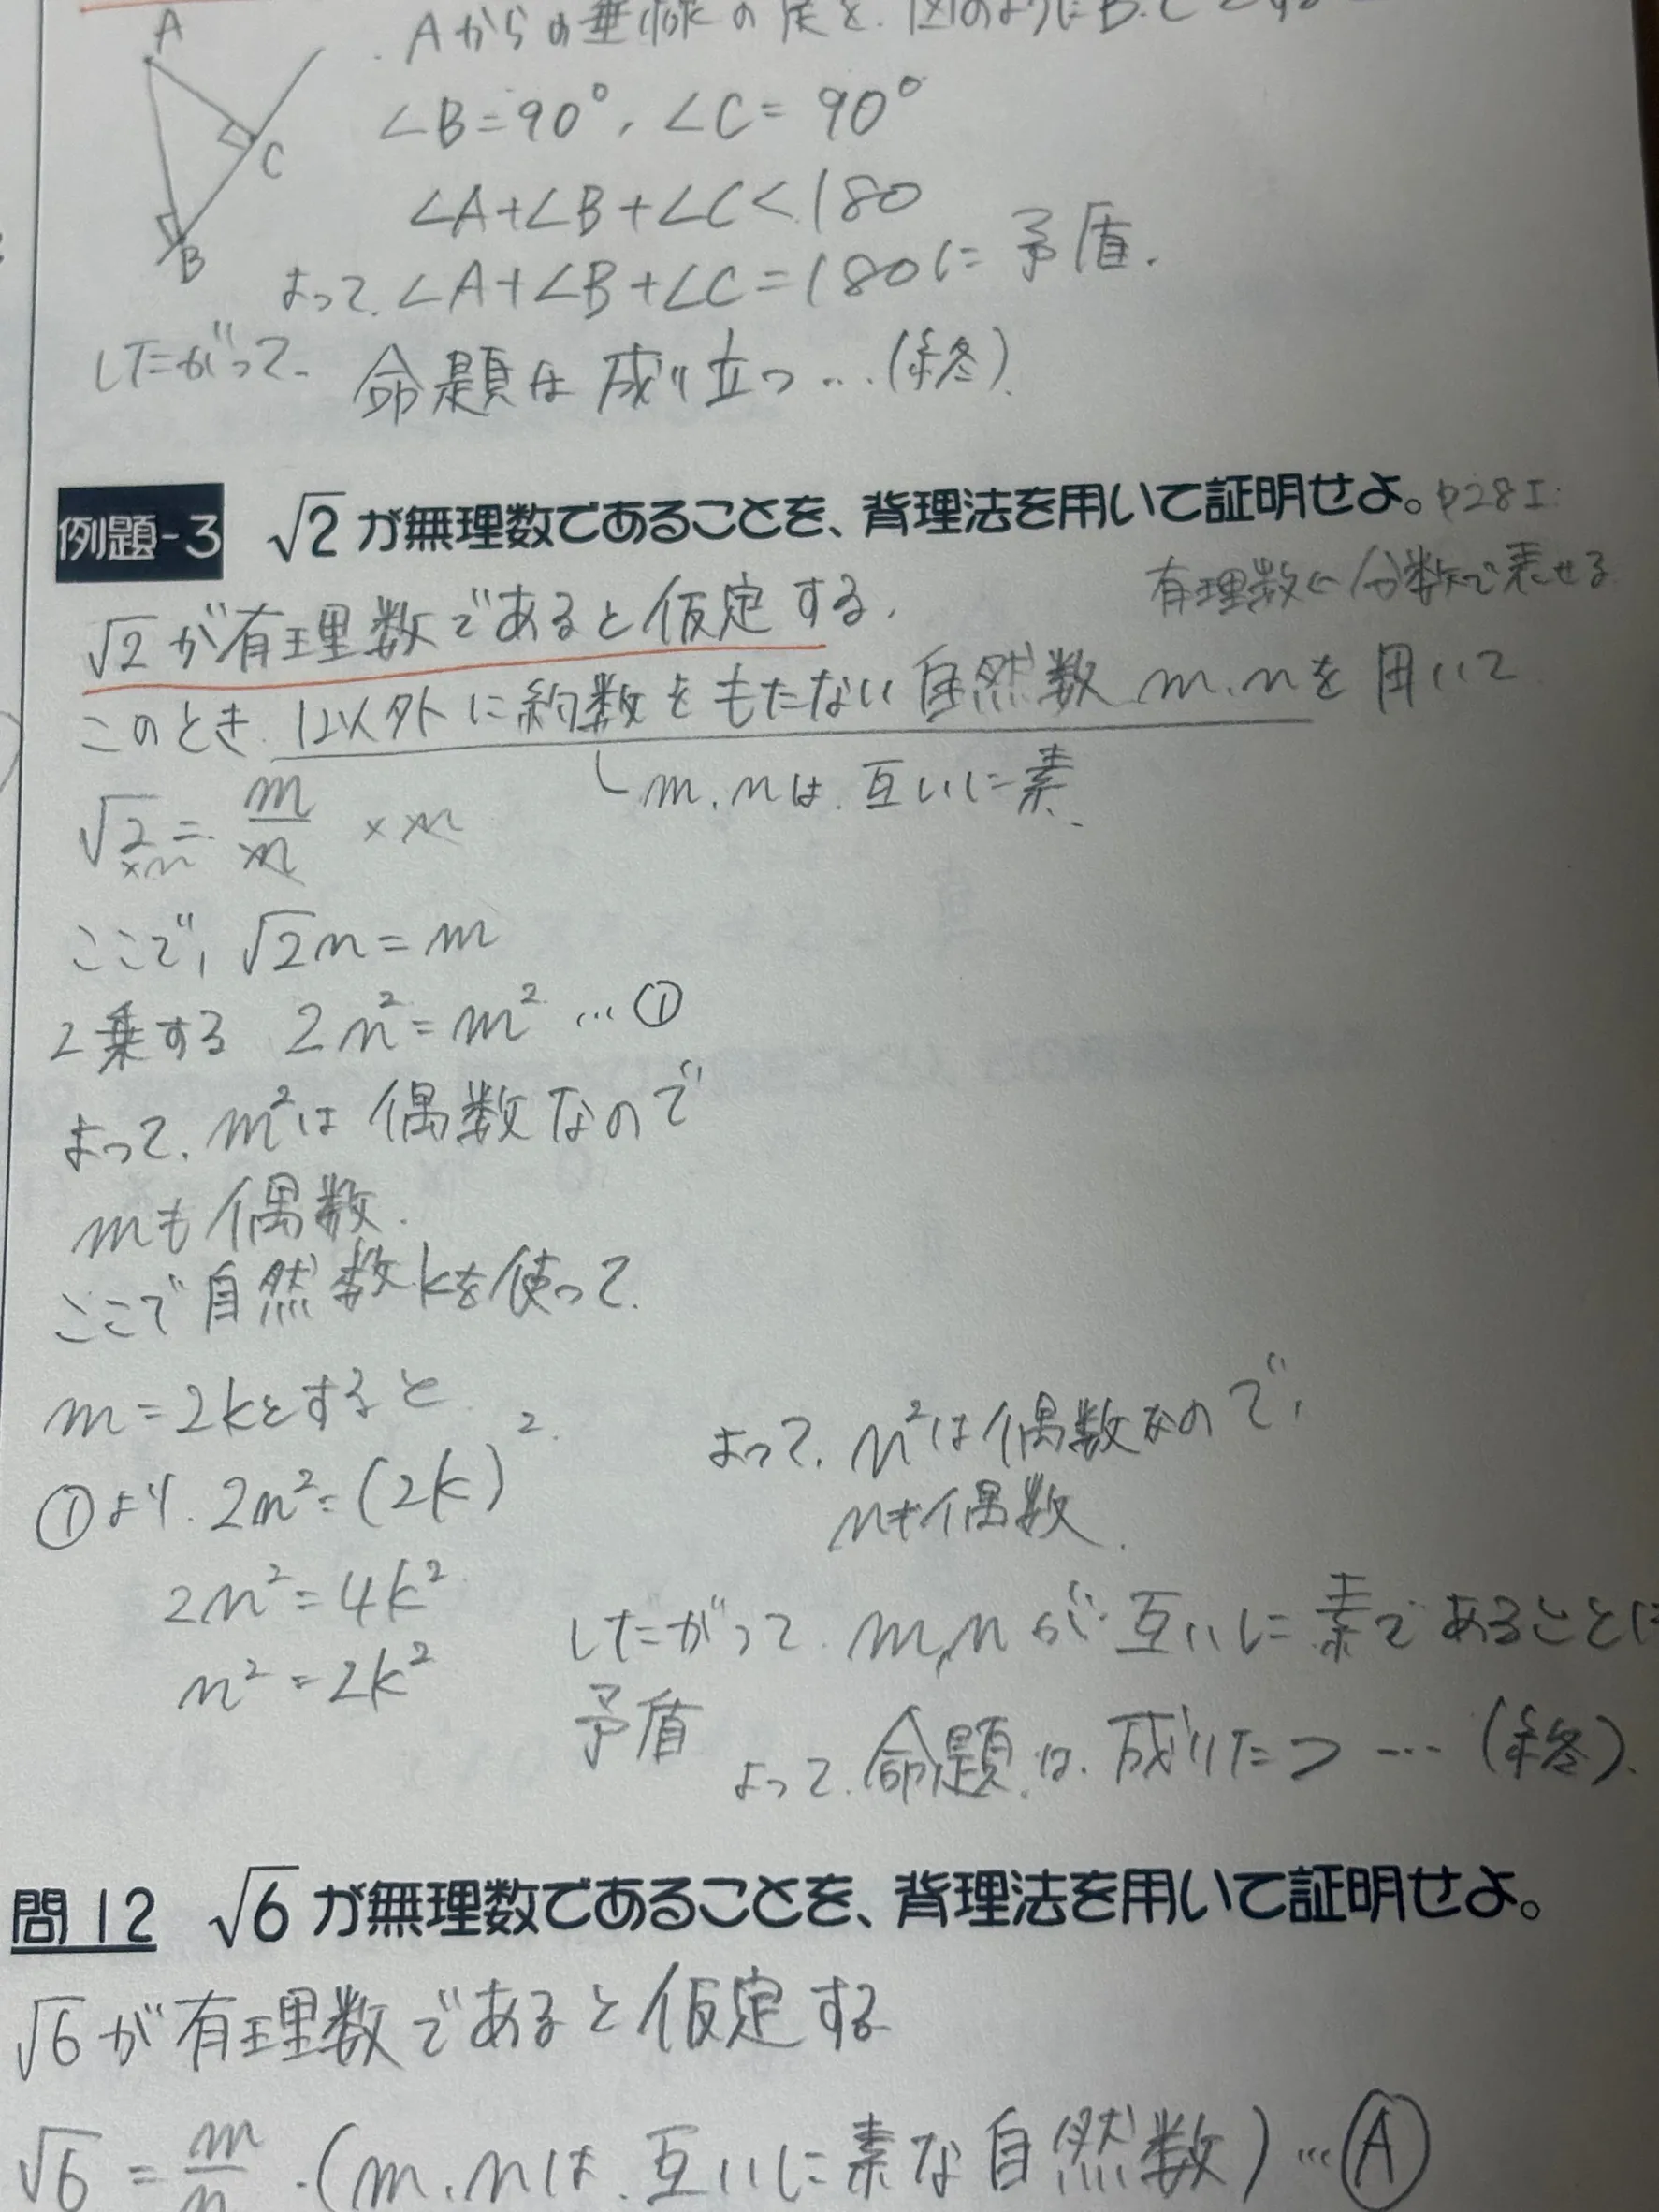 A
C
B
. Aからの垂線の足を、図のようにB.C
∠B=90°, ∠C=90°
∠A+∠B+∠C<180
よって、∠A+∠B+∠C=180に矛盾.
したがって、命題は成り立つ…(終).
例題-3 √2が無理数であることを、背理法を用いて証明せよ。p28I:
有理数⇐分数で表せる
√2が有理数であると仮定する,
このとき、1以外に約数をもたない自然数m,nを用いて
m,nは、互いに素.
√2 = m/n ×n
×n
ここで, √2n=m
2乗する 2n²=m² …①
よって、m²は偶数なので
mも偶数.
ここで自然数kを使って、
m=2kとすると
①より. 2n²=(2k)².
2n²=4k²
n²=2k²
よって、n²は偶数なので,
nも偶数.
したがって、m,nが互いに素であることに
矛盾
よって、命題は、成りたつ…(終).
問12 √6が無理数であることを、背理法を用いて証明せよ。
√6が有理数であると仮定する
√6 = m/n .(m,nは、互いに素な自然数)…Ⓐ